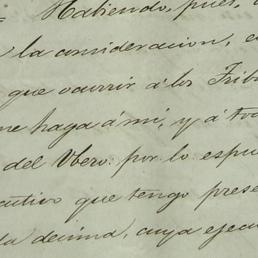 Habiendo, pues,
la consideracion, e
que ocurrir á los Trib
me haga á mí, y á to
del Ubero: por lo espu
cutivo que tengo prese
la decima, cuya ejecu